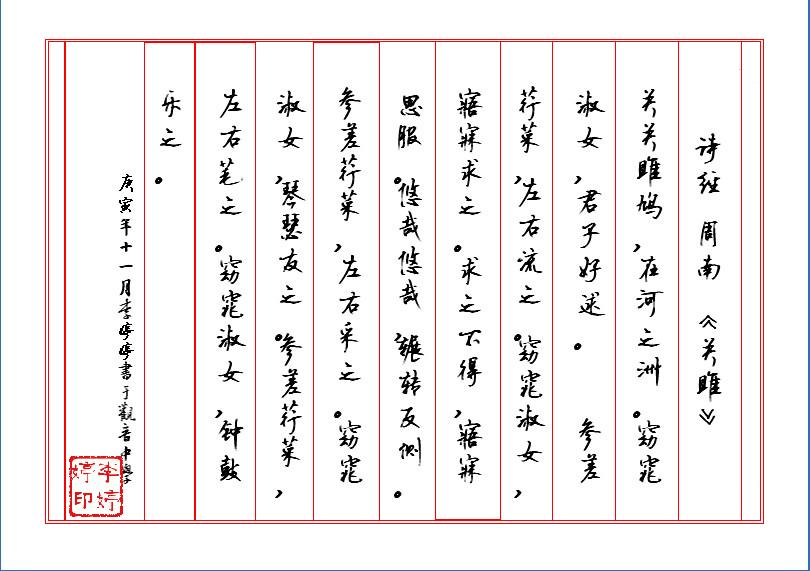 诗经 周南 《关雎》
关关雎鸠，在河之洲。窈窕
淑女，君子好逑。 参差
荇菜，左右流之。窈窕淑女，
寤寐求之。求之不得，寤寐
思服。悠哉悠哉，辗转反侧。
参差荇菜，左右采之。窈窕
淑女，琴瑟友之。参差荇菜，
左右芼之。窈窕淑女，钟鼓
乐之。
庚寅年十一月李婷婷書于觀音中學
李婷
婷印